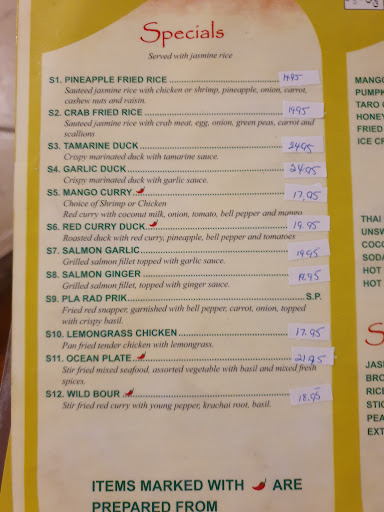 Specials
Served with jasmine rice
S1. PINEAPPLE FRIED RICE 14.95
Sauteed jasmine rice with chicken or shrimp, pineapple, onion, carrot,
cashew nuts and raisin.
S2. CRAB FRIED RICE 19.95
Sauteed jasmine rice with crab meat, egg, onion, green peas, carrot and
scallions
S3. TAMARINE DUCK 24.95
Crispy marinated duck with tamarine sauce.
S4. GARLIC DUCK 24.95
Crispy marinated duck with garlic sauce.
S5. MANGO CURRY 17.95
Choice of Shrimp or Chicken
Red curry with coconut milk, onion, tomato, bell pepper and mango
S6. RED CURRY DUCK 19.95
Roasted duck with red curry, pineapple, bell pepper and tomatoes
S7. SALMON GARLIC 19.95
Grilled salmon fillet topped with garlic sauce.
S8. SALMON GINGER 19.95
Grilled salmon fillet, topped with ginger sauce.
S9. PLA RAD PRIK S.P.
Fried red snapper, garnished with bell pepper, carrot, onion, topped
with crispy basil.
S10. LEMONGRASS CHICKEN 17.95
Pan fried tender chicken with lemongrass.
S11. OCEAN PLATE 21.95
Stir fried mixed seafood, assorted vegetable with basil and mixed fresh
spices.
S12. WILD BOUR 18.95
Stir fried red curry with young pepper, krachai root, basil.
ITEMS MARKED WITH ARE
PREPARED FROM
MANGO
PUMPK
TARO
HONEY
FRIED
ICE CR
THAI
UNSW
COCO
SODA
HOT
HOT
S
JAS
BRO
RICE
STIC
PEA
EXT